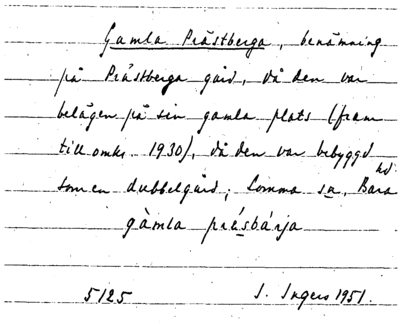 Gamla Prästberga, benämning
på Prästberga gård, då den var
belägen på sin gamla plats (fram
till omkr. 1930), då den var bebyggd
som en dubbelgård; Lomma sn, Bara hd
gàmla présbárja
5125 I. Ingers 1951.